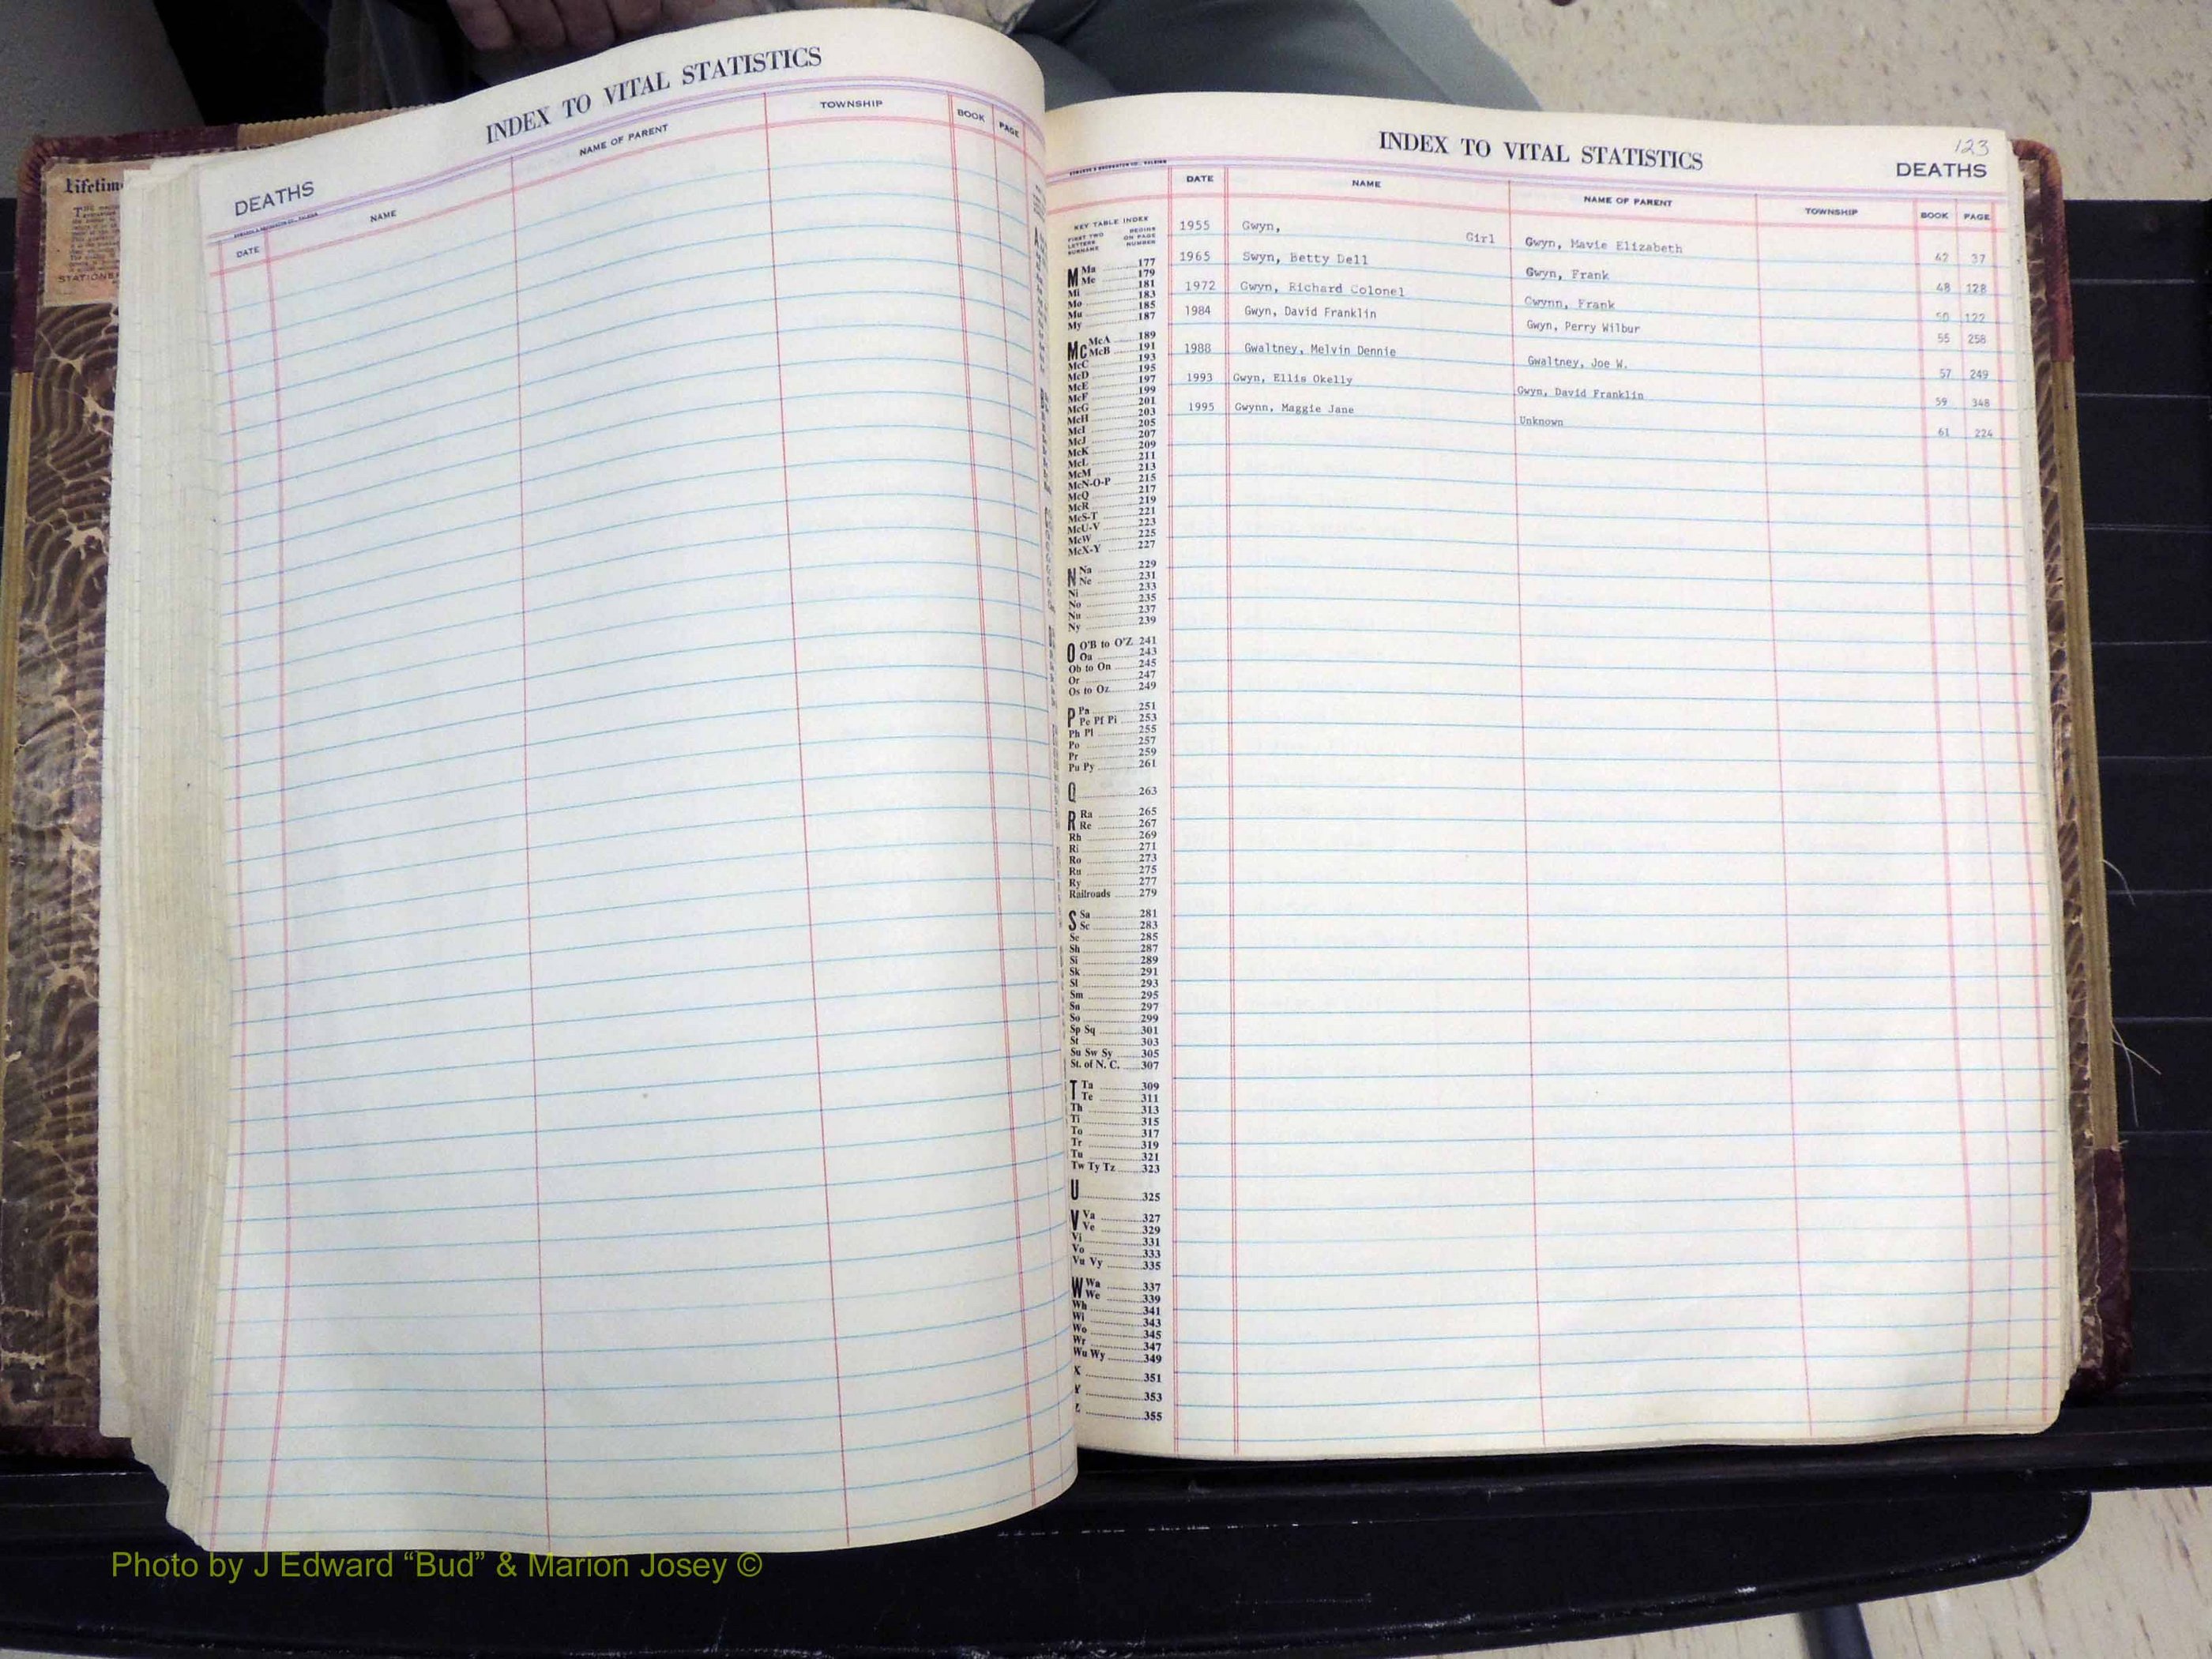 Lifetim
STATIONE
INDEX TO VITAL STATISTICS
DEATHS
DATE NAME NAME OF PARENT TOWNSHIP BOOK PAGE
123
INDEX TO VITAL STATISTICS
DEATHS
DATE NAME NAME OF PARENT TOWNSHIP BOOK PAGE
1955 Gwyn, Girl Gwyn, Mavie Elizabeth 42 37
1965 Swyn, Betty Dell Gwyn, Frank 48 128
1972 Gwyn, Richard Colonel Gwynn, Frank 50 122
1984 Gwyn, David Franklin Gwyn, Perry Wilbur 55 258
1988 Gwaltney, Melvin Dennie Gwaltney, Joe W. 57 249
1993 Gwyn, Ellis Okelly Gwyn, David Franklin 59 348
1995 Gwynn, Maggie Jane Unknown 61 224
KEY TABLE INDEX
FIRST TWO LETTERS SURNAME BEGINS ON PAGE NUMBER
M Ma 177
Me 179
Mi 181
Mo 183
Mu 185
My 187
Mc McA 189
McB 191
McC 193
McD 195
McE 197
McF 199
McG 201
McH 203
McI 205
McJ 207
McK 209
McL 211
McM 213
McN-O-P 215
McQ 217
McR 219
McS-T 221
McU-V 223
McW 225
McX-Y 227
N Na 229
Ne 231
Ni 233
No 235
Nu 237
Ny 239
O O'B to O'Z 241
Oa 243
Ob to On 245
Or 247
Os to Oz 249
P Pa 251
Pe Pf Pi 253
Ph Pl 255
Po 257
Pr 259
Pu Py 261
Q 263
R Ra 265
Re 267
Rh 269
Ri 271
Ro 273
Ru 275
Ry 277
Railroads 279
S Sa 281
Sc 283
Se 285
Sh 287
Si 289
Sk 291
Sl 293
Sm 295
Sn 297
So 299
Sp Sq 301
St 303
Su Sw Sy 305
St. of N. C. 307
T Ta 309
Te 311
Th 313
Ti 315
To 317
Tr 319
Tu 321
Tw Ty Tz 323
U 325
V Va 327
Ve 329
Vi 331
Vo 333
Vu Vy 335
W Wa 337
We 339
Wh 341
Wi 343
Wo 345
Wr 347
Wu Wy 349
X 351
Y 353
Z 355
Photo by J Edward “Bud” & Marion Josey ©